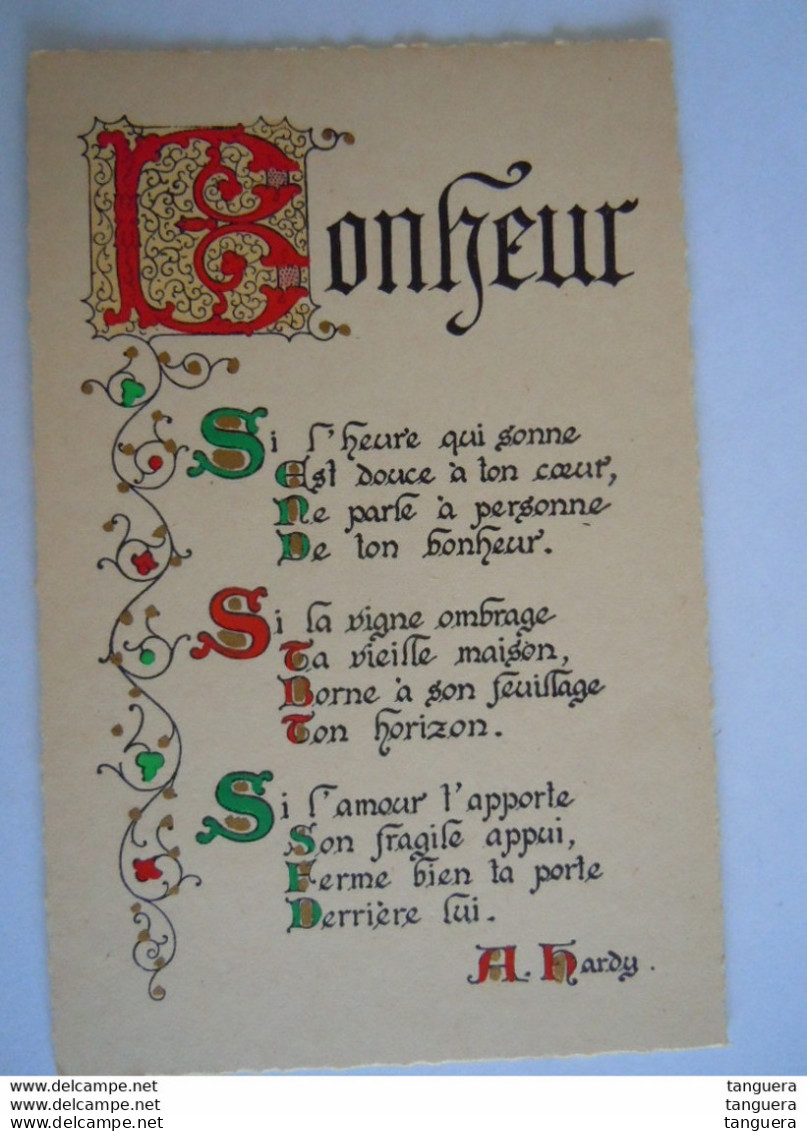 Bonheur
Si l'heure qui sonne
Est douce à ton cœur,
Ne parle à personne
De ton bonheur.
Si la vigne ombrage
Ta vieille maison,
Borne à son feuillage
Ton horizon.
Si l'amour t'apporte
Son fragile appui,
Ferme bien ta porte
Derrière lui.
A. Hardy.
www.delcampe.net tanguera
www.delcampe.net tanguera
www.delcampe.net tanguera